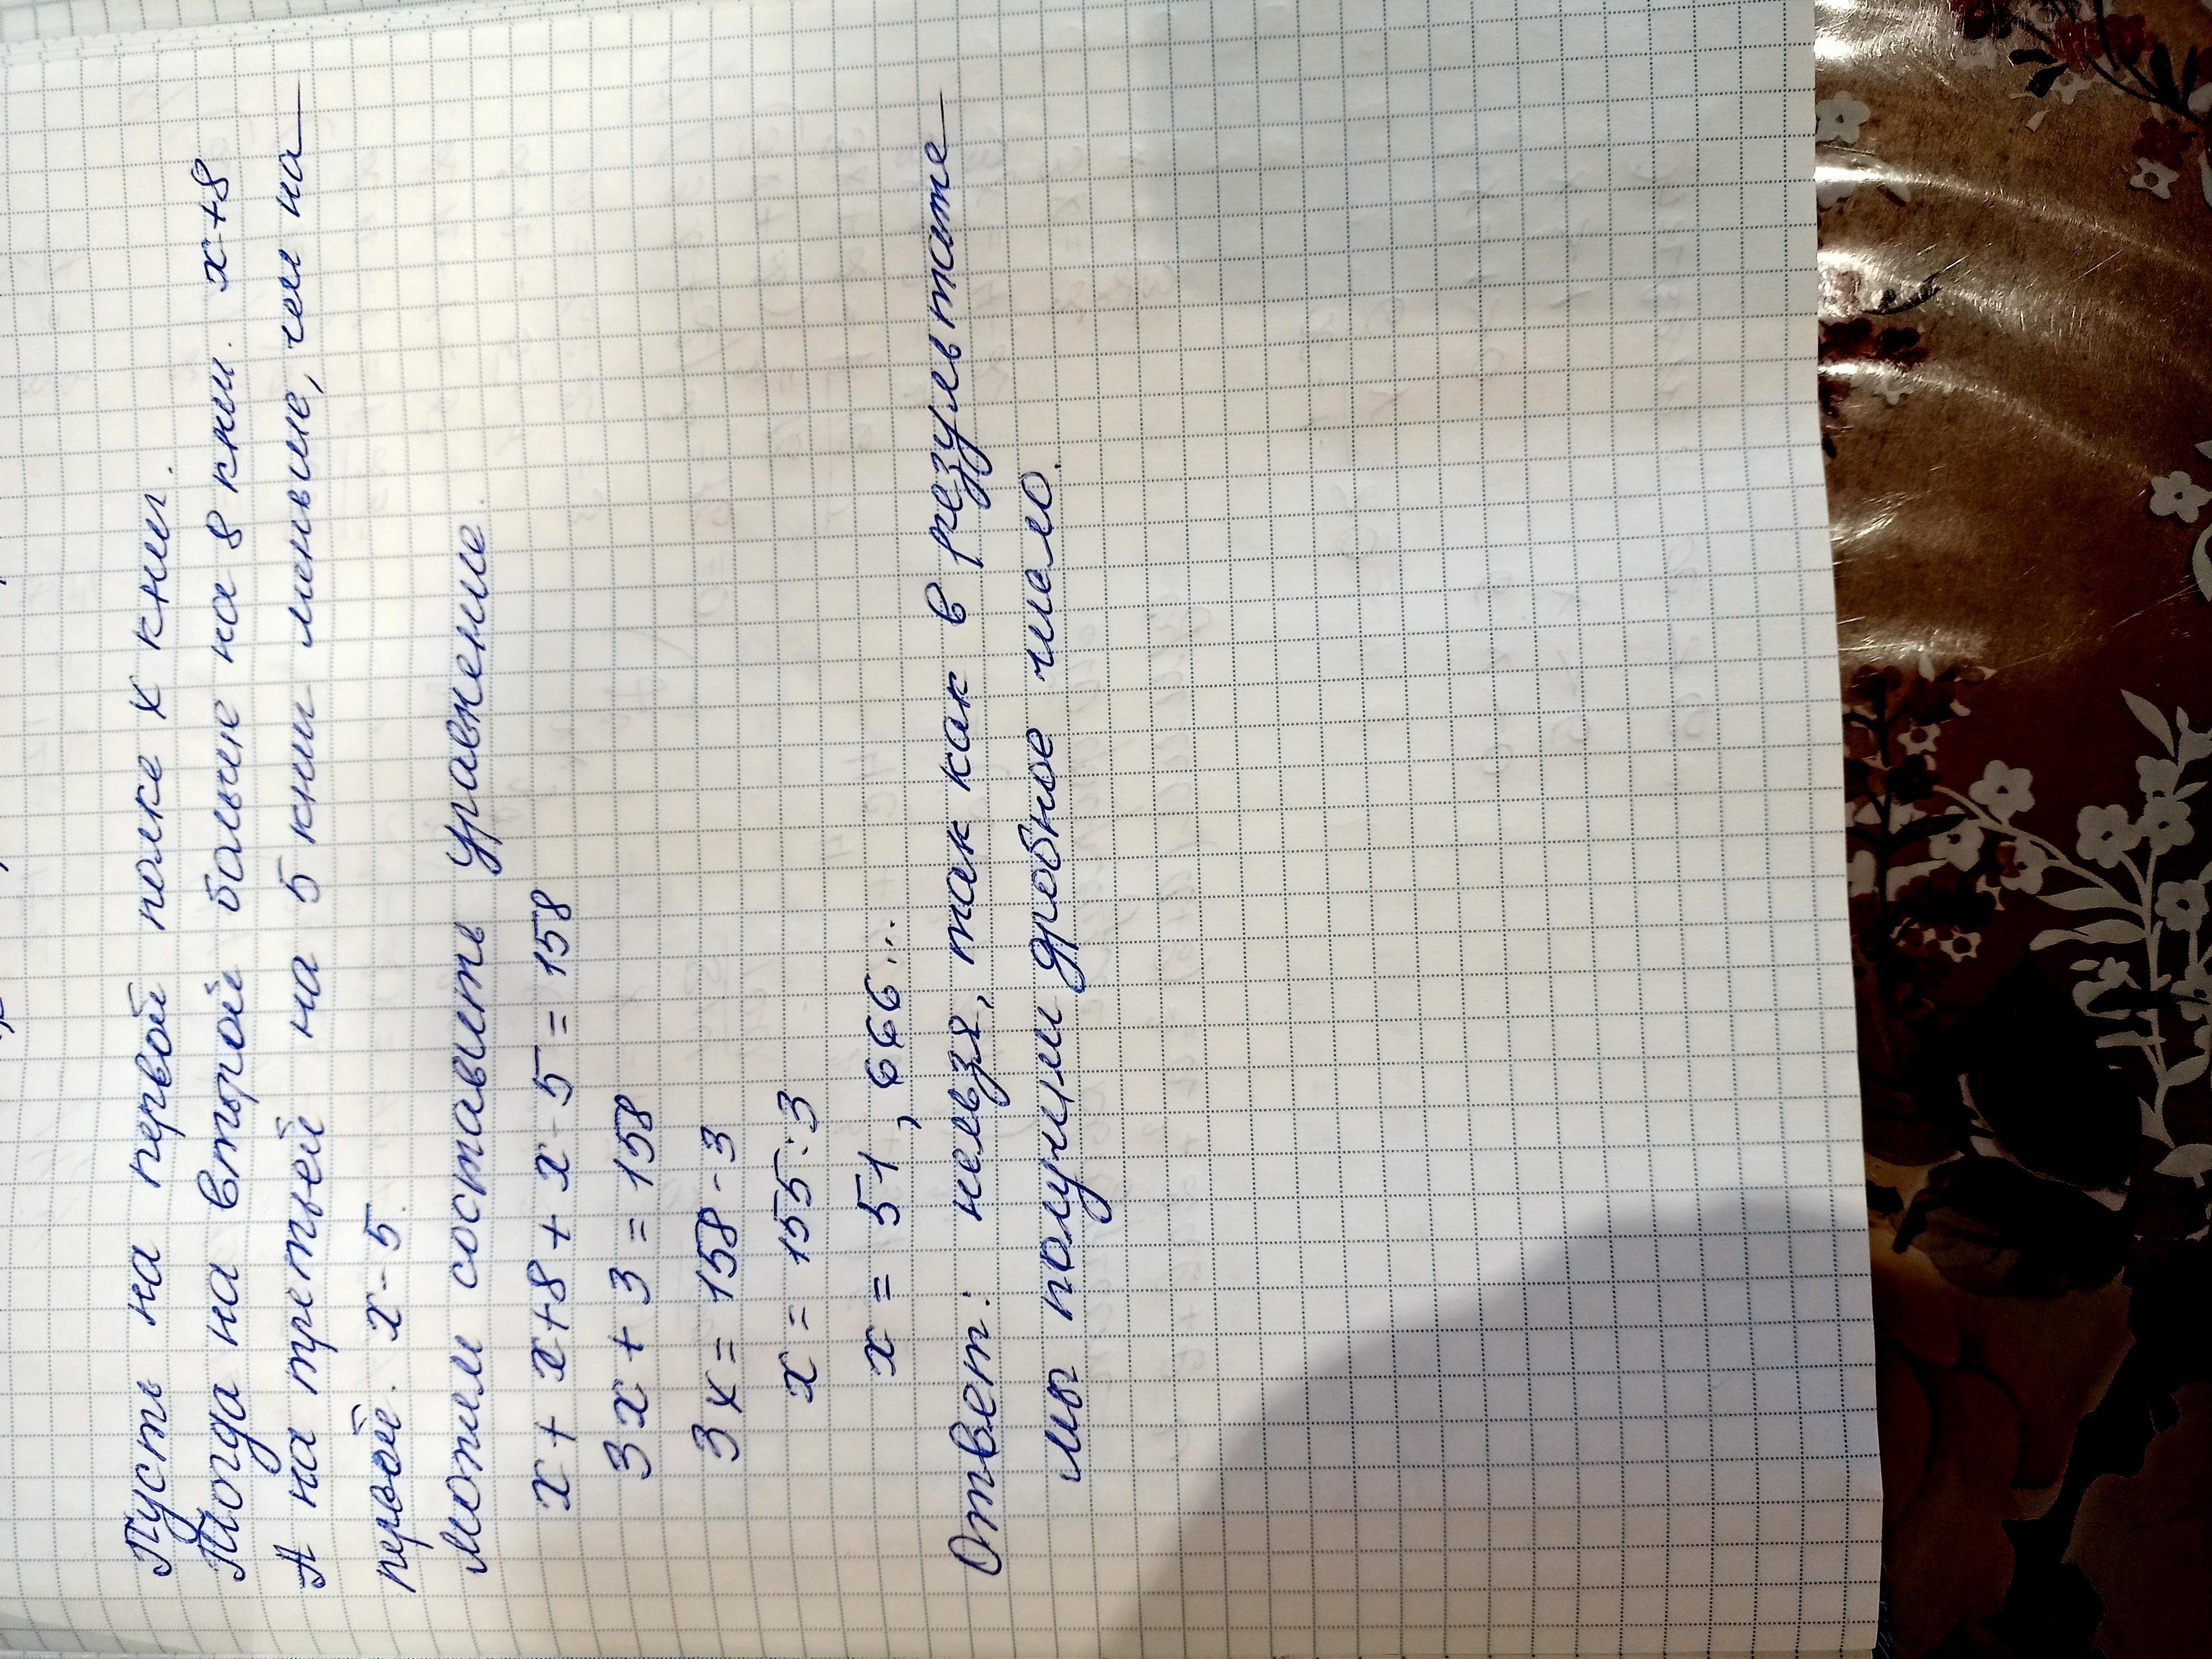 Пусть на первой полке х книг.
Тогда на второй больше на 8 книг. х+8
А на третьей на 5 книг меньше, чем на
первой. х-5.
Можем составить уравнение.
х + х+8 + х-5 = 158
3х + 3 = 158
3х = 158-3
х = 155:3
х = 51,666...
Ответ: нельзя, так как в результате
мы получим дробное число.